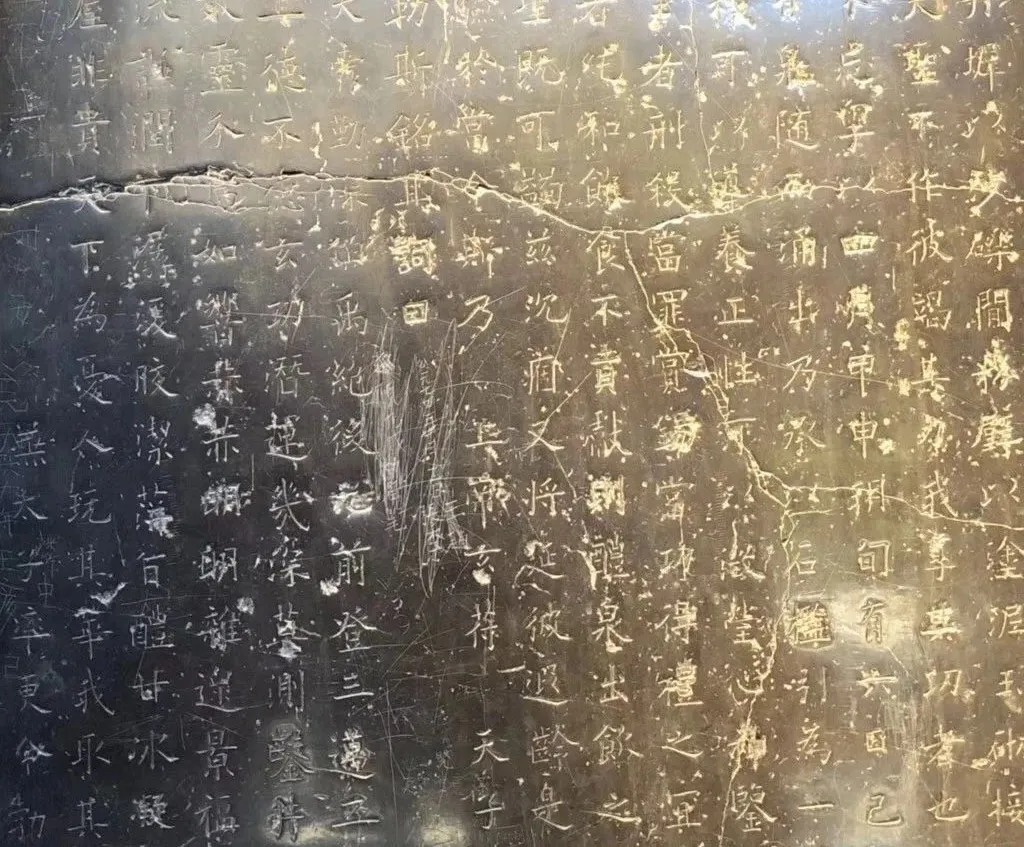 丹墀以沙礫間粉壁以塗泥玉砌接
大聖不作彼竭其力我享其功者也
不忘粵以四月甲申朔旬有六日己
有泉隨而涌出乃承以石檻引為一
穢可以導養正性可以澂瑩心神鑒
王者刑殺當罪賞錫當功得禮之宜
者純和飲食不貢獻則醴泉出飲之
聖既可蠲茲沉痼又將延彼遐齡是
驗於當今斯乃上帝玄符天子
勒斯銘其詞曰
大舜勤深伯禹絕後光前登三邁五
上德不德玄功潛運幾深莫測鑿井
效靈介焉如響赫赫明明雜遝景福
流謙潤下潺湲皎潔蓱旨醴甘冰凝
屋非貴天下為憂人玩其華我取其
兼太子率更令勃